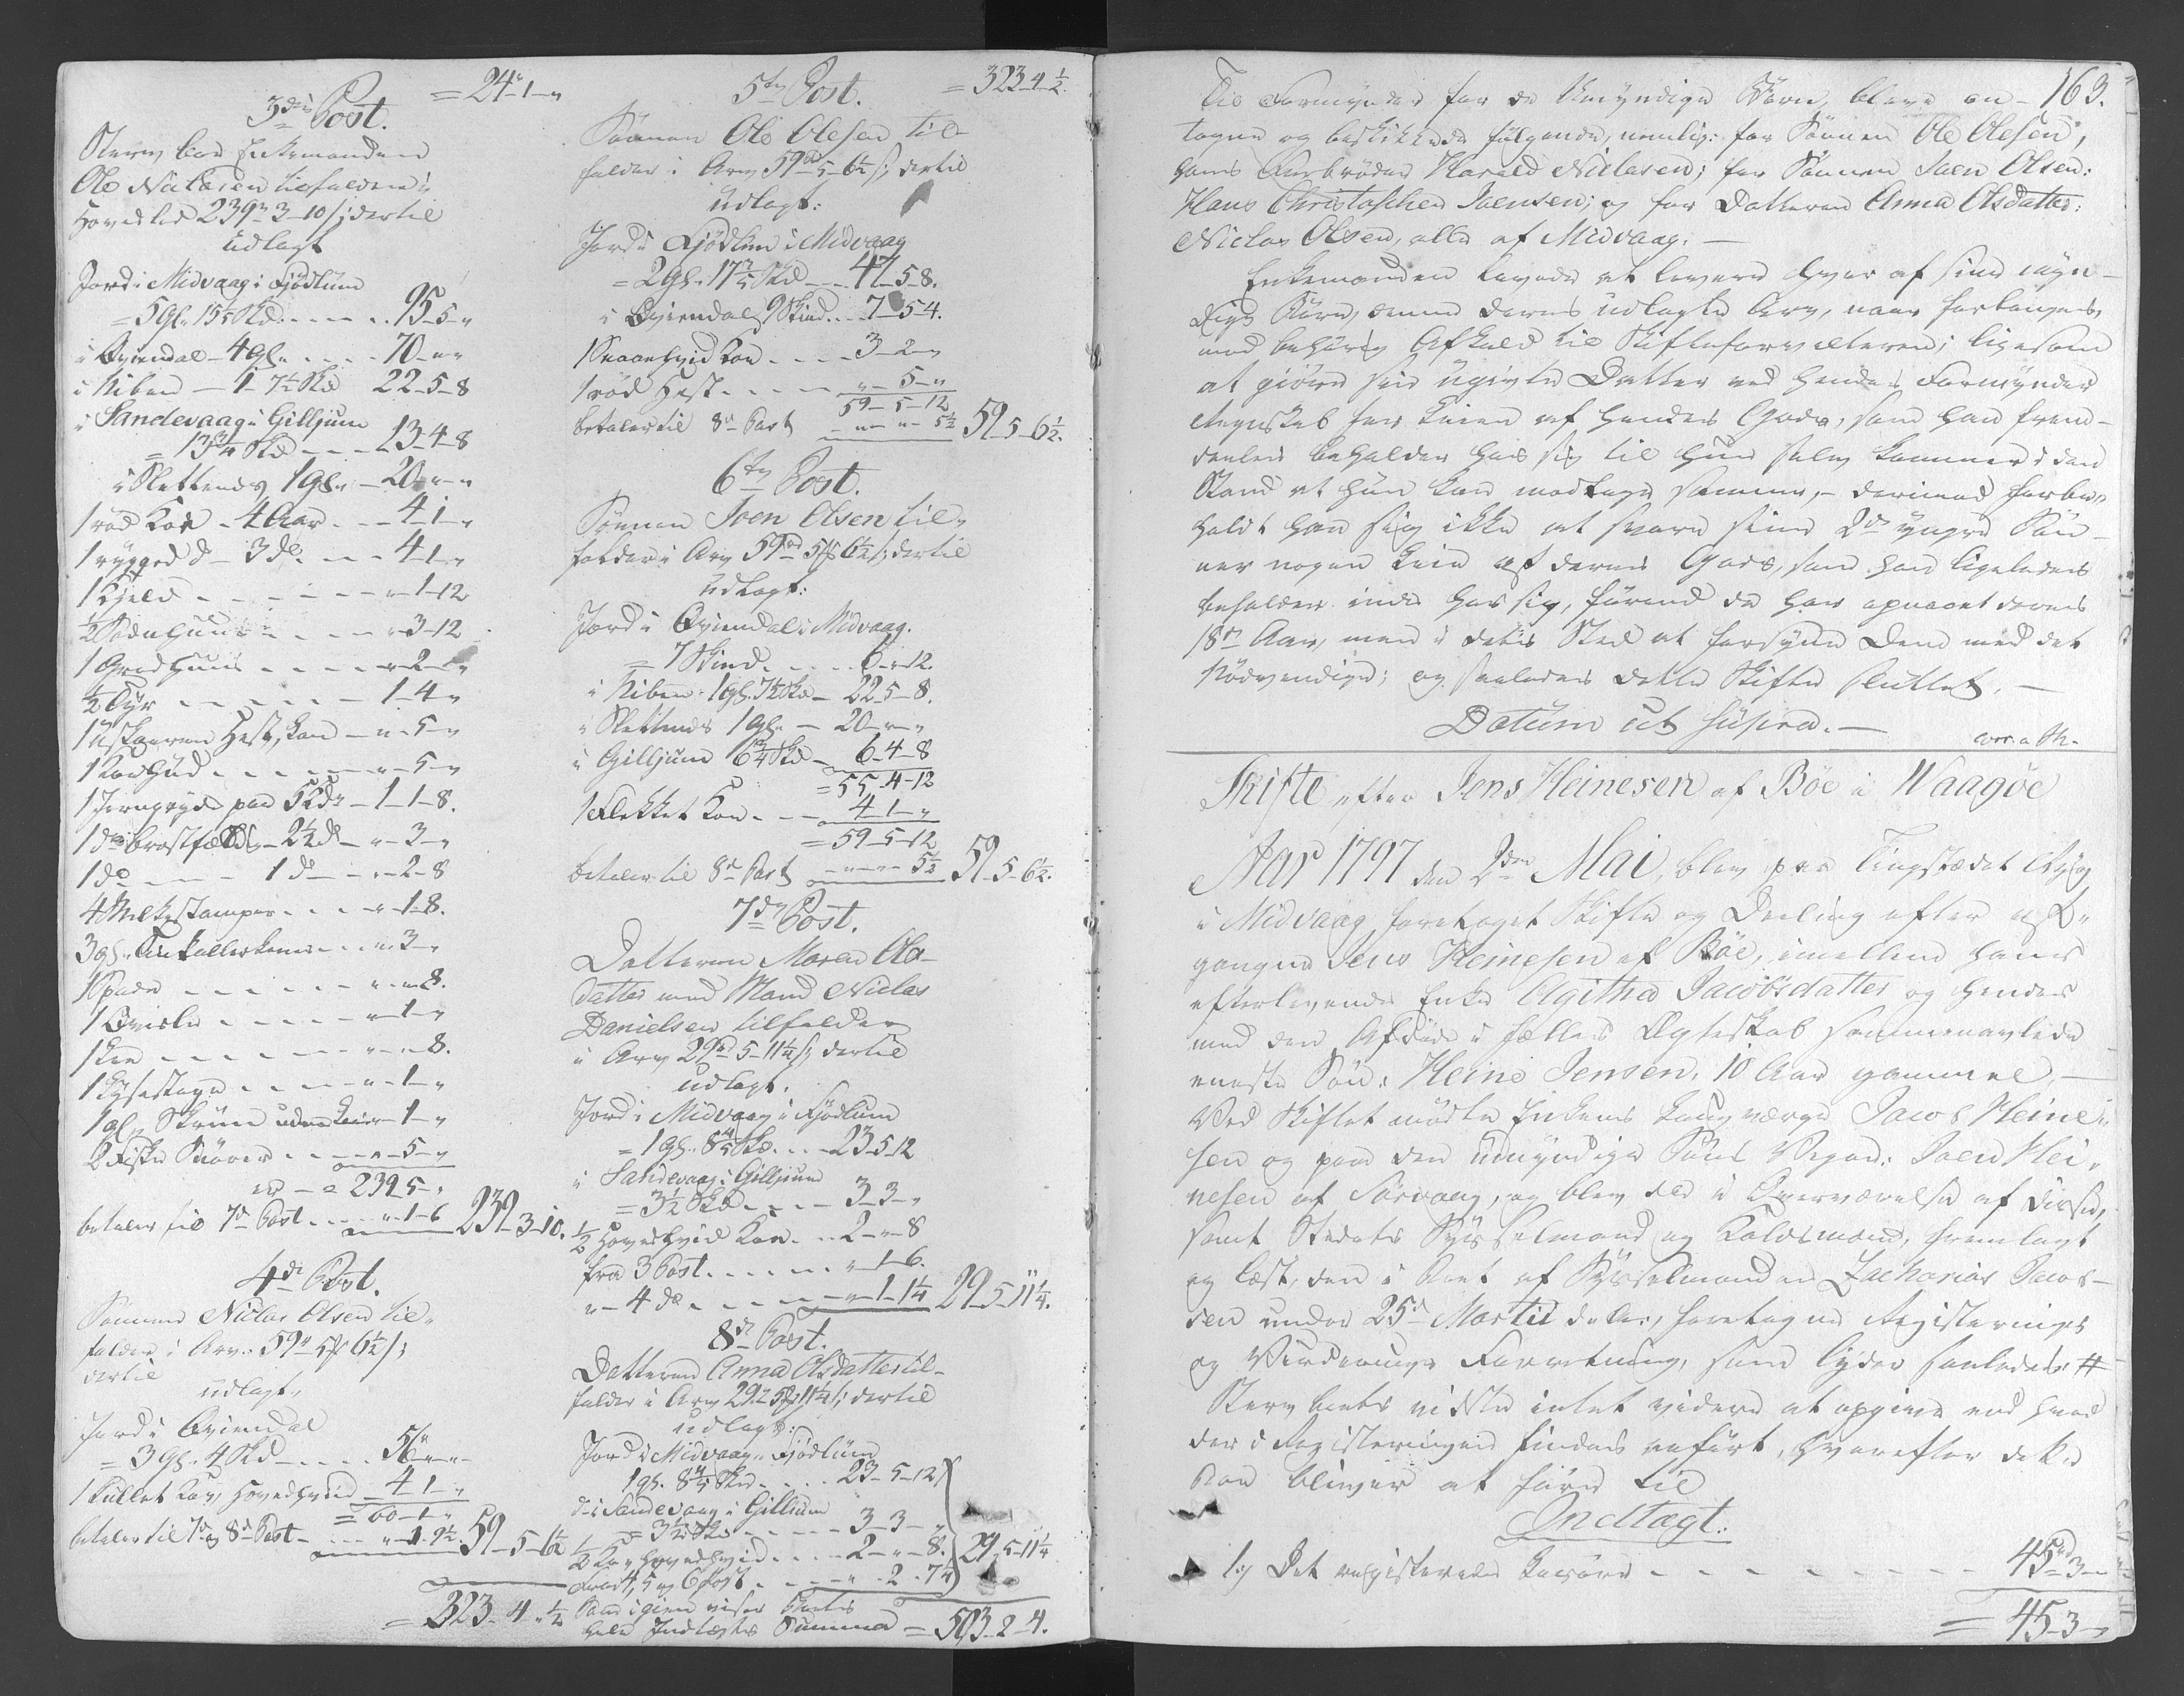 = 24 - 1 - "
3die Post.
Sterv boe Enkemanden
Ole Niclasen tilfalder i
Hovedlod 239 rd 3 - 10 s; dertil
udlagt
Jord i Midvaag i Fjødlum
= 5 gl. 15 1/5 Skd. - - - - 95 - 5 - "
i Qviendal - 4 gl. - - - 70 - " - "
i Niben - 1 - 7 1/2 Skd 22 - 5 - 8
i Sandevaag i Gilljum
= 13 3/4 Skd - - - 13 - 4 - 8
i Slettenes 1 gl. - 20 - " - "
1 rød Koe - 4 Aar - - - 4 - 1 - "
1 rygged do - 3 do - - - 4 - 1 - "
1 Kjeld - - - - - - " - 1 - 12
1/2 Sædehuus - - - - " - 3 - 12
1 Gradhuus - - - - " - 2 - "
1/2 Tyr - - - - - 1 - 4 - "
1 uskaaren Hest, - " - 5 - "
1 Koehud - - - - - " - 5 - "
1 Jerngryde paa 5 Kdr - 1 - 1 - 8.
1 do brøstfældig - 2 1/2 do - " - 3 - "
1 do - - - 1 do - " - 2 - 8
4 Melkestamper - - - " - 1 - 8.
3 gl. - - - " 3 - "
1 Spade - - - - - " - " - 8.
1 Qvislu - - - - " - 1 - "
1 Lee - - - - - " - " - 8.
1 Lysestage - - - - " - 1 - "
1 gl. Skriin uden - 1 - "
2 Fiske Snører - - - - " - 5 - "
er - = 239 - 5 - "
betaler til 7de Post - - - " - 1 - 6 239 - 3 - 10.
4de Post.
Sønnen Niclas Olsen til-
falder i Arv: 59 rd 5 sk 6 1/2 s;
dertil
udlagt,
Jord i Qviendal
= 3 gl. 4 Skd - - - - 56 - " - "
1 kullet Koe, hovedhvid - 4 - 1 - "
= 60 - 1 - "
betaler til 7de og 8de Post - - - " - 1 - 9 1/2. 59 - 5 - 6 1/2
= 323 - 4 - " 1/2
5te Post. = 323 - 4 - 1/2.
Sønnen Ole Olesen til-
falder i Arv 59 rd - 5 - 6 1/2 s; dertil
udlagt:
Jord i Fjødlum i Midvaag
= 2 gl. 17 3/5 Skd - - - 47 - 5 - 8.
i Qviendal 9 Skind - - 7 - 5 - 4.
1 Snaaehvid Koe - - - - 3 - 2 - "
1 rød Hest - - - - " - 5 - "
59 - 5 - 12
betaler til 8de Post - " - " - 5 1/2 59 - 5 - 6 1/2.
6te Post.
Sønnen Joen Olsen til-
falder i Arv 59 rd 5 sk 6 1/2 s; dertil
udlagt:
Jord i Qviendal i Midvaag.
= 7 Skind - - - - 6 - " - 12.
i Niben - 1 gl. 7 1/2 Skd - 22 - 5 - 8.
i Slettenes 1 gl. - 20 - " - "
i Gilljum 6 3/4 Skd - 6 - 4 - 8
= 55 - 4 - 12
1 Flekket Koe - - - 4 - 1 - "
= 59 - 5 - 12
betaler til 8de Post - " - " - 5 1/2 59 - 5 - 6 1/2.
7de Post.
Datteren Maren Ols-
datter med Mand Niclas
Danielsen tilfalder
i Arv 29 rd 5 - 11 1/4 s; dertil
udlagt.
Jord i Midvaag i Fjødlum
= 1 gl. 8 4/5 Skd. - - - 23 - 5 - 12
i Sandevaag i Gilljum
= 3 1/2 Skd - - - - 3 - 3 - "
1/2 Hovedhvid Koe - - 2 - " - 8
fra 3 Post - - - - - " - 1 - 6.
" - 4 do - - - - " - 1 - 1 1/4 29 - 5 - 11 1/4.
8de Post.
Datteren Anna Olsdatter til-
falder i Arv 29 rd 5 sk 11 1/4 s; dertil
udlagt:
Jord i Midvaag i Fjødlum
1 gl. 8 4/5 Skd - - - 23 - 5 - 12
do i Sandevaag i Gilljum
= 3 1/2 Skd - - - - 3 - 3 - "
1/2 Koe hovedhvid - - - 2 - " - 8.
Fra 4, 5 og 6 Post - - - - " - 2 - 7 1/4 29 - 5 - 11 1/4
Som igien viser Boets
hele Indtægts Summa = 503 - 2 - 4.
163.
Til Formynder for de Umyndige Børn, bleve an-
tagne og beskikkede følgende, nemlig: for Sønnen Ole Olesen,
hans Farbroder Harald Niclesen; for Sønnen Joen Olsen:
Hans Christopher Joensen; og for Datteren Anna Olsdatter:
Niclas Olsen, alle af Midvaag. -
Enkemanden lovede at levere hver af sine myn-
dige Børn, denne deres udlagte Arv, naar forlanges,
mod behørig Afkald til Skifteforvalteren; ligesom
at giøre sin ugivte Datter ved hendes Formynder
Regnskab for Leien af hendes Gods, som han frem-
deeles beholder hos sig til hun selv kommer i den
Stand at hun kan modtage samme, - derimod forbe-
holdt han sig ikke at svare sine 2de yngre Søn-
ner nogen Leie af deres Gods, som han ligeledes
beholder inde hos sig, førend de har opnaaet deres
18de Aar, men i detes Sted at forsyne dem med det
Nødvendige; og saaledes dette Skifte sluttet. -
Datum ut supra. -
Skifte efter Jens Heinesen af Bøe i Waagøe
Aar 1797 den 2den Mai, blev paa Tingstædet
i Midvaag foretaget Skifte og Deeling efter af-
gangne Jens Heinesen af Bøe, imellem hans
efterlevende Enke Agitha Jacobsdatter og hendes
med den Afdøde i fælles Ægteskab sammenavlede
eneste Søn: Heine Jensen, 10 Aar gammel, -
Ved Skiftet mødte Enkens Laugværge Jacob Heine-
sen og paa den umyndige Søns Vegne: Joen Hei-
nesen af Sørvaag, og blev da i Overværelse af disse,
samt Stedets Sysselmand og Kaldsmænd, fremlagt
og læst, den i Boet af Sysselmanden Zacharias Jacob-
sen under 25de Martii d. A., foretagne Registerings
og Vurderings Forretning, som lyder saaledes: #
Sterv boets vidste intet videre at opgive end hvad
der i Registeringen findes anført, hvorefter dets
bliver at føre til
Indtægt.
1:) Det registerede Løsøre - - - - - - - - 45 rd - 3 - "
= 45 - 3 - "